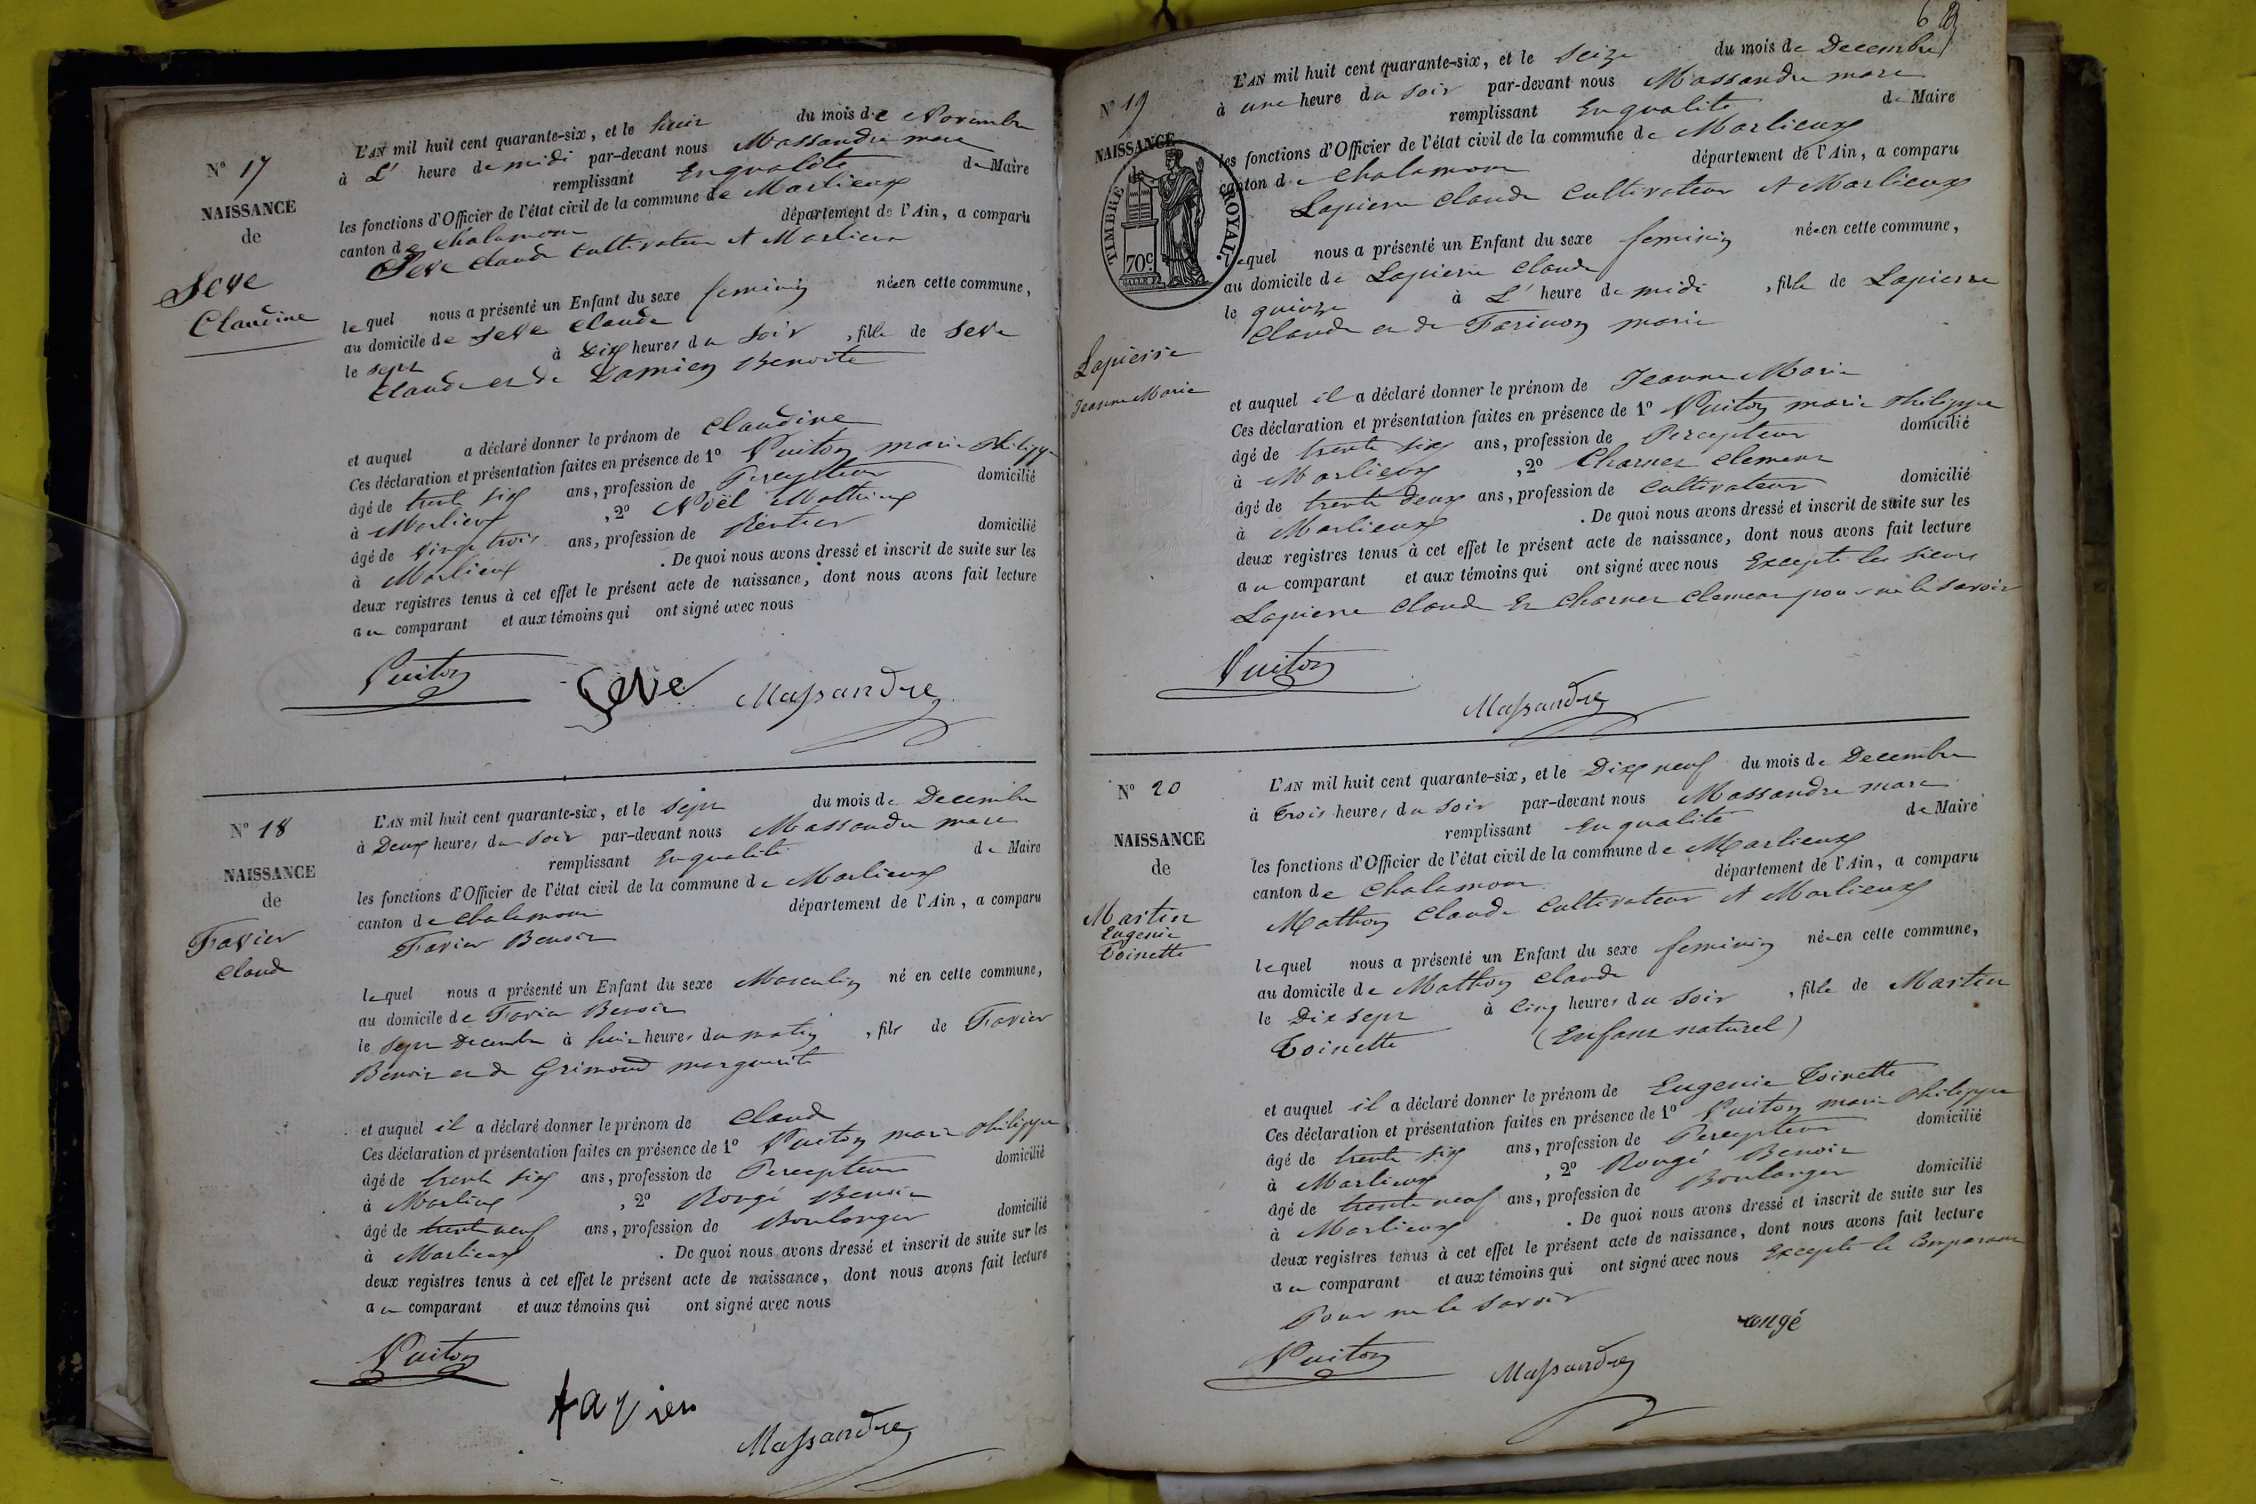 N° 17
NAISSANCE
de
Seve
Claudine
L'AN mil huit cent quarante-six, et le huit du mois de Novembre
à L' heure de midi par-devant nous Massandre marc
remplissant En qualité de Maire
les fonctions d'Officier de l'état civil de la commune de Marlieux
canton de Chalamont département de l'Ain, a comparu
Seve Claude Cultivateur A Marlieux
lequel nous a présenté un Enfant du sexe feminin née en cette commune,
au domicile de Seve Claude
le sept à Dix heures du soir, fille de Seve
Claude et de Damien Benoite
et auquel a déclaré donner le prénom de Claudine
Ces déclaration et présentation faites en présence de 1° Vuiton marie Philippe
âgé de trente six ans, profession de Percepteur domicilié
à Marlieux, 2° Noël Mathieux
âgé de vingt trois ans, profession de Rentier domicilié
à Marlieux. De quoi nous avons dressé et inscrit de suite sur les
deux registres tenus à cet effet le présent acte de naissance, dont nous avons fait lecture
au comparant et aux témoins qui ont signé avec nous
Vuiton Seve Massandre
N° 18
NAISSANCE
de
Favier
Claude
L'AN mil huit cent quarante-six, et le sept du mois de Decembre
à Deux heures du soir par-devant nous Massandre marc
remplissant En qualité de Maire
les fonctions d'Officier de l'état civil de la commune de Marlieux
canton de Chalamont département de l'Ain, a comparu
Favier Benoit
lequel nous a présenté un Enfant du sexe Masculin né en cette commune,
au domicile de Favier Benoit
le sept Decembre à huit heures du matin, fils de Favier
Benoit et de Grimoud marguerite
et auquel il a déclaré donner le prénom de Claude
Ces déclaration et présentation faites en présence de 1° Vuiton marie Philippe
âgé de trente six ans, profession de Percepteur domicilié
à Marlieux, 2° Rongé Benoit
âgé de trente neuf ans, profession de Boulanger domicilié
à Marlieux. De quoi nous avons dressé et inscrit de suite sur les
deux registres tenus à cet effet le présent acte de naissance, dont nous avons fait lecture
au comparant et aux témoins qui ont signé avec nous
Vuiton
favier
Massandre
6
N° 19
NAISSANCE
de
TIMBRE ROYAL
70c
Lapierre
Jeanne Marie
L'AN mil huit cent quarante-six, et le seize du mois de Decembre
à une heure du soir par-devant nous Massandre marc
remplissant En qualité de Maire
les fonctions d'Officier de l'état civil de la commune de Marlieux
canton de Chalamont département de l'Ain, a comparu
Lapierre Claude Cultivateur A Marlieux
lequel nous a présenté un Enfant du sexe feminin née en cette commune,
au domicile de Lapierre Claude
le quinze à L' heure de midi, fille de Lapierre
Claude et de Farinon marie
et auquel il a déclaré donner le prénom de Jeanne Marie
Ces déclaration et présentation faites en présence de 1° Vuiton marie Philippe
âgé de trente six ans, profession de Percepteur domicilié
à Marlieux, 2° Charnet Clement
âgé de trente deux ans, profession de Cultivateur domicilié
à Marlieux. De quoi nous avons dressé et inscrit de suite sur les
deux registres tenus à cet effet le présent acte de naissance, dont nous avons fait lecture
au comparant et aux témoins qui ont signé avec nous Excepté les sieurs
Lapierre Claude Et Charnet Clement pour ne le savoir
Vuiton
Massandre
N° 20
NAISSANCE
de
Martin
Eugenie
Toinette
L'AN mil huit cent quarante-six, et le Dix neuf du mois de Decembre
à Trois heures du soir par-devant nous Massandre marc
remplissant En qualité de Maire
les fonctions d'Officier de l'état civil de la commune de Marlieux
canton de Chalamont département de l'Ain, a comparu
Mathon Claude Cultivateur A Marlieux
lequel nous a présenté un Enfant du sexe feminin née en cette commune,
au domicile de Mathon Claude
le Dix sept à Cinq heures du soir, fille de Martin
Toinette (Enfant naturel)
et auquel il a déclaré donner le prénom de Eugenie Toinette
Ces déclaration et présentation faites en présence de 1° Vuiton marie Philippe
âgé de trente six ans, profession de Percepteur domicilié
à Marlieux, 2° Rongé Benoit
âgé de trente neuf ans, profession de Boulanger domicilié
à Marlieux. De quoi nous avons dressé et inscrit de suite sur les
deux registres tenus à cet effet le présent acte de naissance, dont nous avons fait lecture
au comparant et aux témoins qui ont signé avec nous Excepté le Comparant
Pour ne le savoir
rongé
Vuiton
Massandre